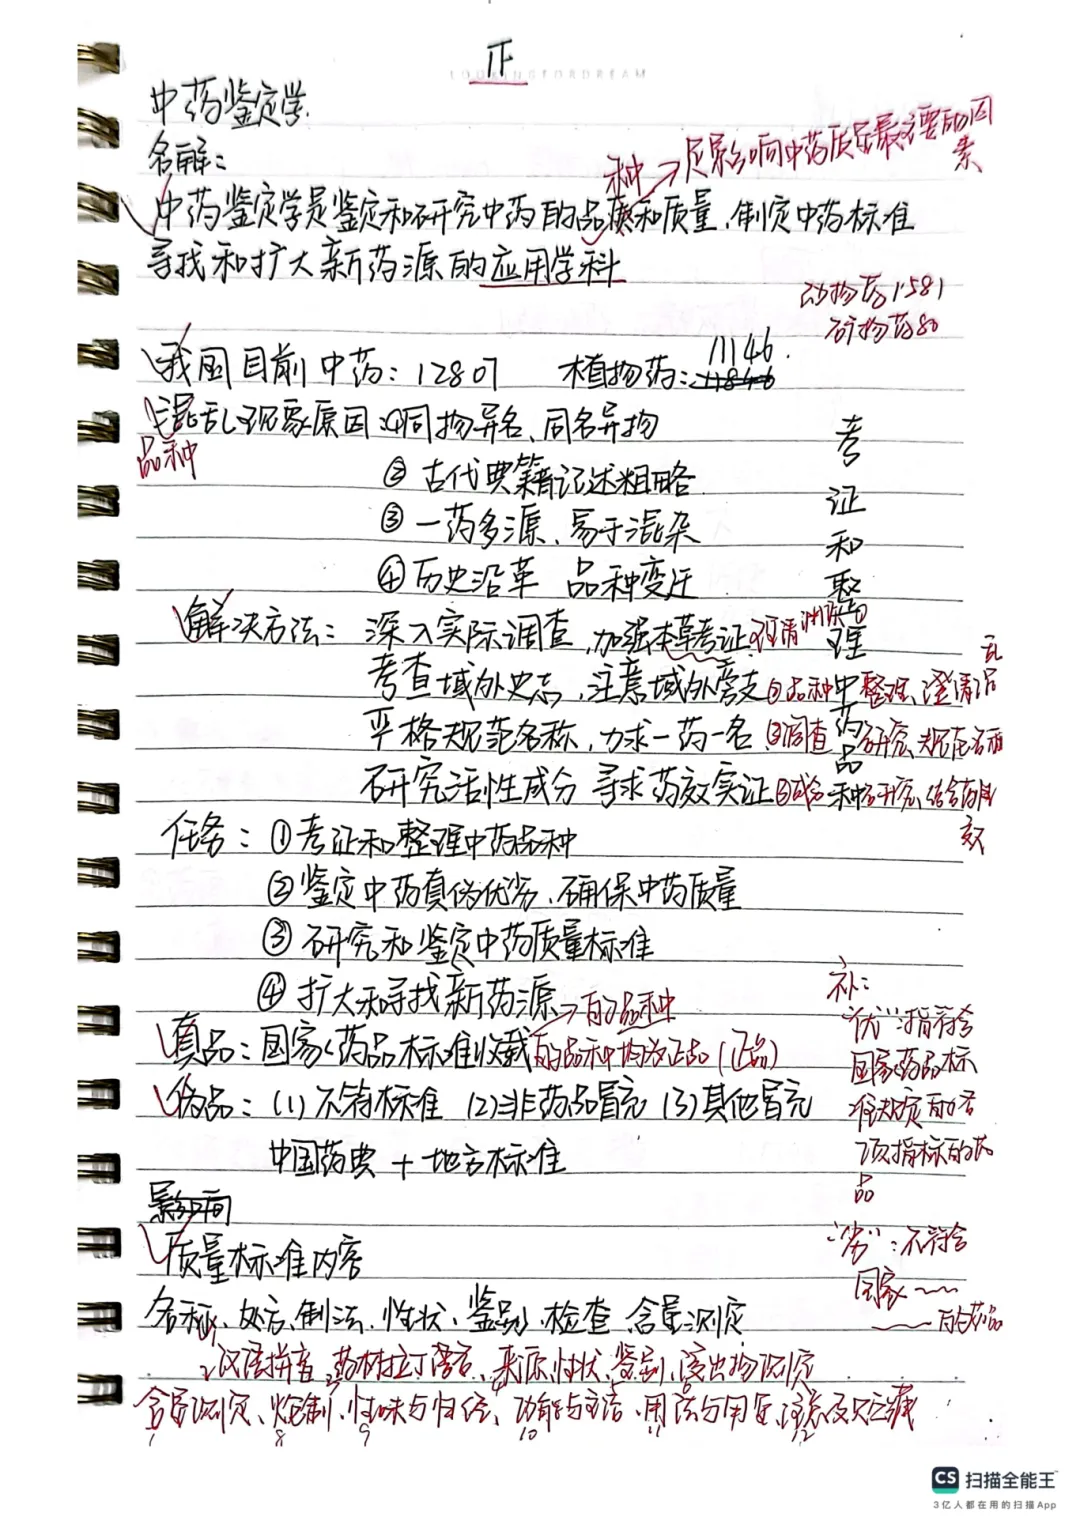 正
LOOKINGFORDREAM
中药鉴定学
名解：
种→是影响中药质量最主要的因素
中药鉴定学是鉴定和研究中药的品种和质量、制定中药标准
寻找和扩大新药源的应用学科
动物药1581
矿物药80
我国目前中药：12807 植物药：11146
混乱现象原因：①同物异名、同名异物
品种
② 古代典籍记述粗略
③ 一药多源、易于混杂
④ 历史沿革 品种变迁
考证和整理中药品种
解决方法：深入实际调查，加强本草考证
考查域外史志，注意域外旁支 ①品种 整理、澄清混乱
严格规范名称，力求一药一名 ②调查 研究、规范名称
研究活性成分 寻求药效实证 ③成分 研究、结合药效
任务：①考证和整理中药品种
② 鉴定中药真伪优劣、确保中药质量
③ 研究和鉴定中药质量标准
④ 扩大和寻找新药源→的品种
真品：国家药品标准收载的品种均为正品（正品）
伪品：(1) 不符标准 (2)非药品冒充 (3)其他冒充
中国药典 + 地方标准
影响
质量标准内容
名称、处方、制法、性状、鉴别、检查、含量测定
汉语拼音、药材拉丁语言、来源、性状、鉴别、浸出物测定
含量测定、炮制、性味与归经、功能与主治、用法与用量、注意及贮藏
7 8 9 10 11 12
补：
“优”：指符合
国家药品标
准规定的各
项指标的药
品
“劣”：不符合
国家～～
～～的药品
CS 扫描全能王
3亿人都在用的扫描App